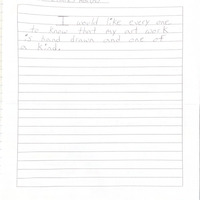 I would like every one
to know that my art work
is hand drawn and one of
a kind.